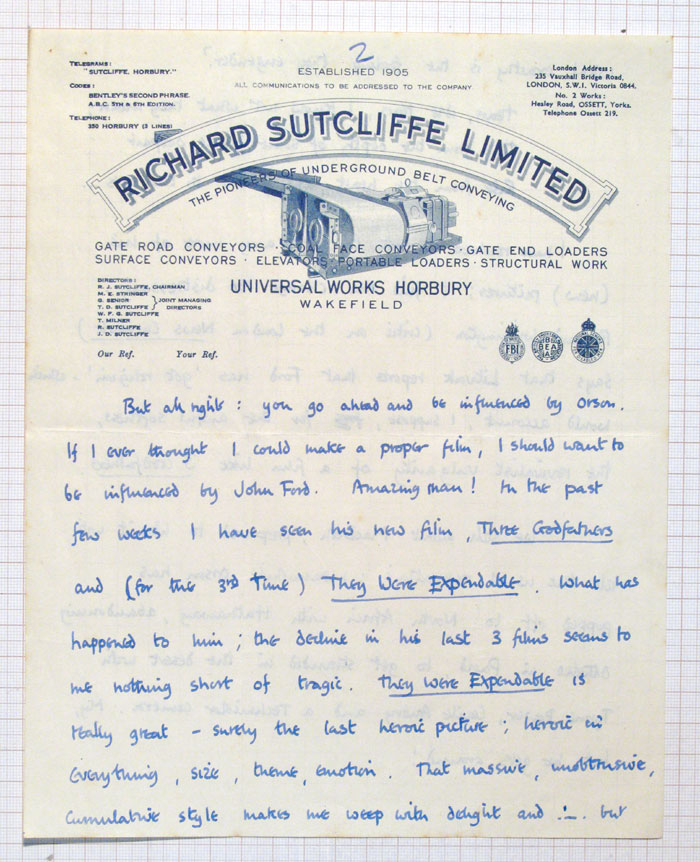 2
TELEGRAMS:
"SUTCLIFFE, HORBURY."
CODES:
BENTLEY'S SECOND PHRASE.
A.B.C. 5TH & 6TH EDITION.
TELEPHONE:
350 HORBURY (3 LINES)
ESTABLISHED 1905
ALL COMMUNICATIONS TO BE ADDRESSED TO THE COMPANY
London Address:
235 Vauxhall Bridge Road,
LONDON, S.W.1. Victoria 0844.
No. 2 Works:
Healey Road, OSSETT, Yorks.
Telephone Ossett 219.
RICHARD SUTCLIFFE LIMITED
THE PIONEERS OF UNDERGROUND BELT CONVEYING
GATE ROAD CONVEYORS · COAL FACE CONVEYORS · GATE END LOADERS
SURFACE CONVEYORS · ELEVATORS · PORTABLE LOADERS · STRUCTURAL WORK
DIRECTORS:
R. J. SUTCLIFFE, CHAIRMAN
M. E. STRINGER
G. SENIOR
T. D. SUTCLIFFE
JOINT MANAGING
DIRECTORS
W. F. G. SUTCLIFFE
T. MILNER
R. SUTCLIFFE
J. D. SUTCLIFFE
UNIVERSAL WORKS HORBURY
WAKEFIELD
FBI
BEA
Our Ref. Your Ref.
But all right: you go ahead and be influenced by Orson.
If I ever thought I could make a proper film, I should want to
be influenced by John Ford. Amazing man! In the past
few weeks I have seen his new film, Three Godfathers
and (for the 3rd time) They Were Expendable. What has
happened to him; the decline in his last 3 films seems to
me nothing short of tragic. They Were Expendable is
really great - surely the last heroic picture; heroic in
everything, size, theme, emotion. That massive, unobtrusive,
cumulative style makes me weep with delight and but